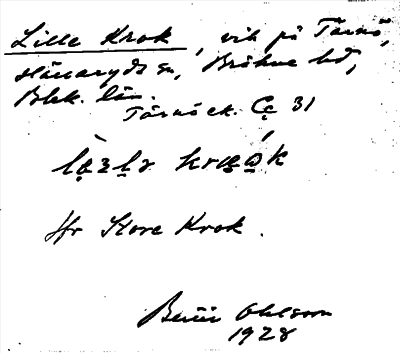 Lille Krok, vik på Tärnö,
Hällaryds sn, Bräkne hd,
Blek. län.
Tärnö ek. Cc 31
Jfr Store Krok.
Bertil Ohlsson
1928